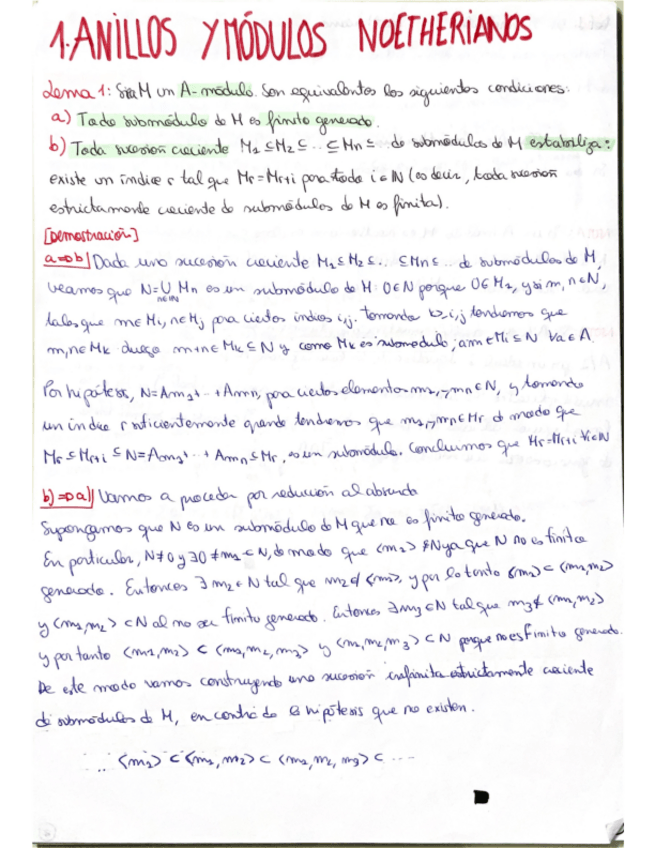 1. ANILLOS Y MÓDULOS NOETHERIANOS
Lema 1: Sea M un A-módulo. Son equivalentes las siguientes condiciones:
a) Todo submódulo de M es finito generado.
b) Toda sucesión creciente M₁ ⊆ M₂ ⊆ ... ⊆ Mn ⊆ de submódulos de M estabiliza:
existe un índice r tal que Mr = Mr+i para todo i ∈ ℕ (es decir, toda sucesión
estrictamente creciente de submódulos de M es finita).
[Demostración]
a⇒b) Dada una sucesión creciente M₁ ⊆ M₂ ⊆ ... ⊆ Mn ⊆ ... de submódulos de M,
veamos que N = ∪ Mn es un submódulo de M: 0 ∈ N porque 0 ∈ M₁, y si m, n ∈ N,
n∈ℕ
tales que m ∈ Mi, n ∈ Mj para ciertos índices i, j, tomando k ≥ i, j tendremos que
m, n ∈ Mk luego m+n ∈ Mk ⊆ N y como Mk es submódulo, am ∈ Mi ⊆ N ∀a ∈ A.
Por hipótesis, N = Am₁ + ... + Amn, para ciertos elementos m₁, ..., mn ∈ N, y tomando
un índice r suficientemente grande tendremos que m₁, ..., mn ∈ Mr de modo que
Mr ⊆ Mr+i ⊆ N = Am₁ + ... + Amn ⊆ Mr, es un submódulo. Concluimos que Mr = Mr+i ∀i∈ℕ
b) ⇒ a) Vamos a proceder por reducción al absurdo
Supongamos que N es un submódulo de M que no es finito generado.
En particular, N ≠ 0 y ∃ 0 ≠ m₁ ∈ N, de modo que <m₁> ≠ N ya que N no es finito
generado. Entonces ∃ m₂ ∈ N tal que m₂ ∉ <m₁>, y por lo tanto <m₁> ⊂ <m₁, m₂>
y <m₁, m₂> ⊂ N al no ser finito generado. Entonces ∃ m₃ ∈ N tal que m₃ ∉ <m₁, m₂>
y por tanto <m₁, m₂> ⊂ <m₁, m₂, m₃> y <m₁, m₂, m₃> ⊂ N porque no es finito generado.
De este modo vamos construyendo una sucesión infinita estrictamente creciente
de submódulos de M, en contra de la hipótesis que no existen.
<m₁> ⊂ <m₁, m₂> ⊂ <m₁, m₂, m₃> ⊂ ...